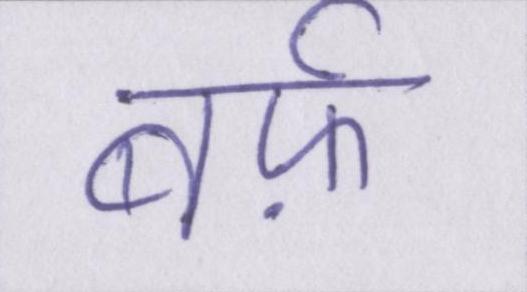 बर्फ़